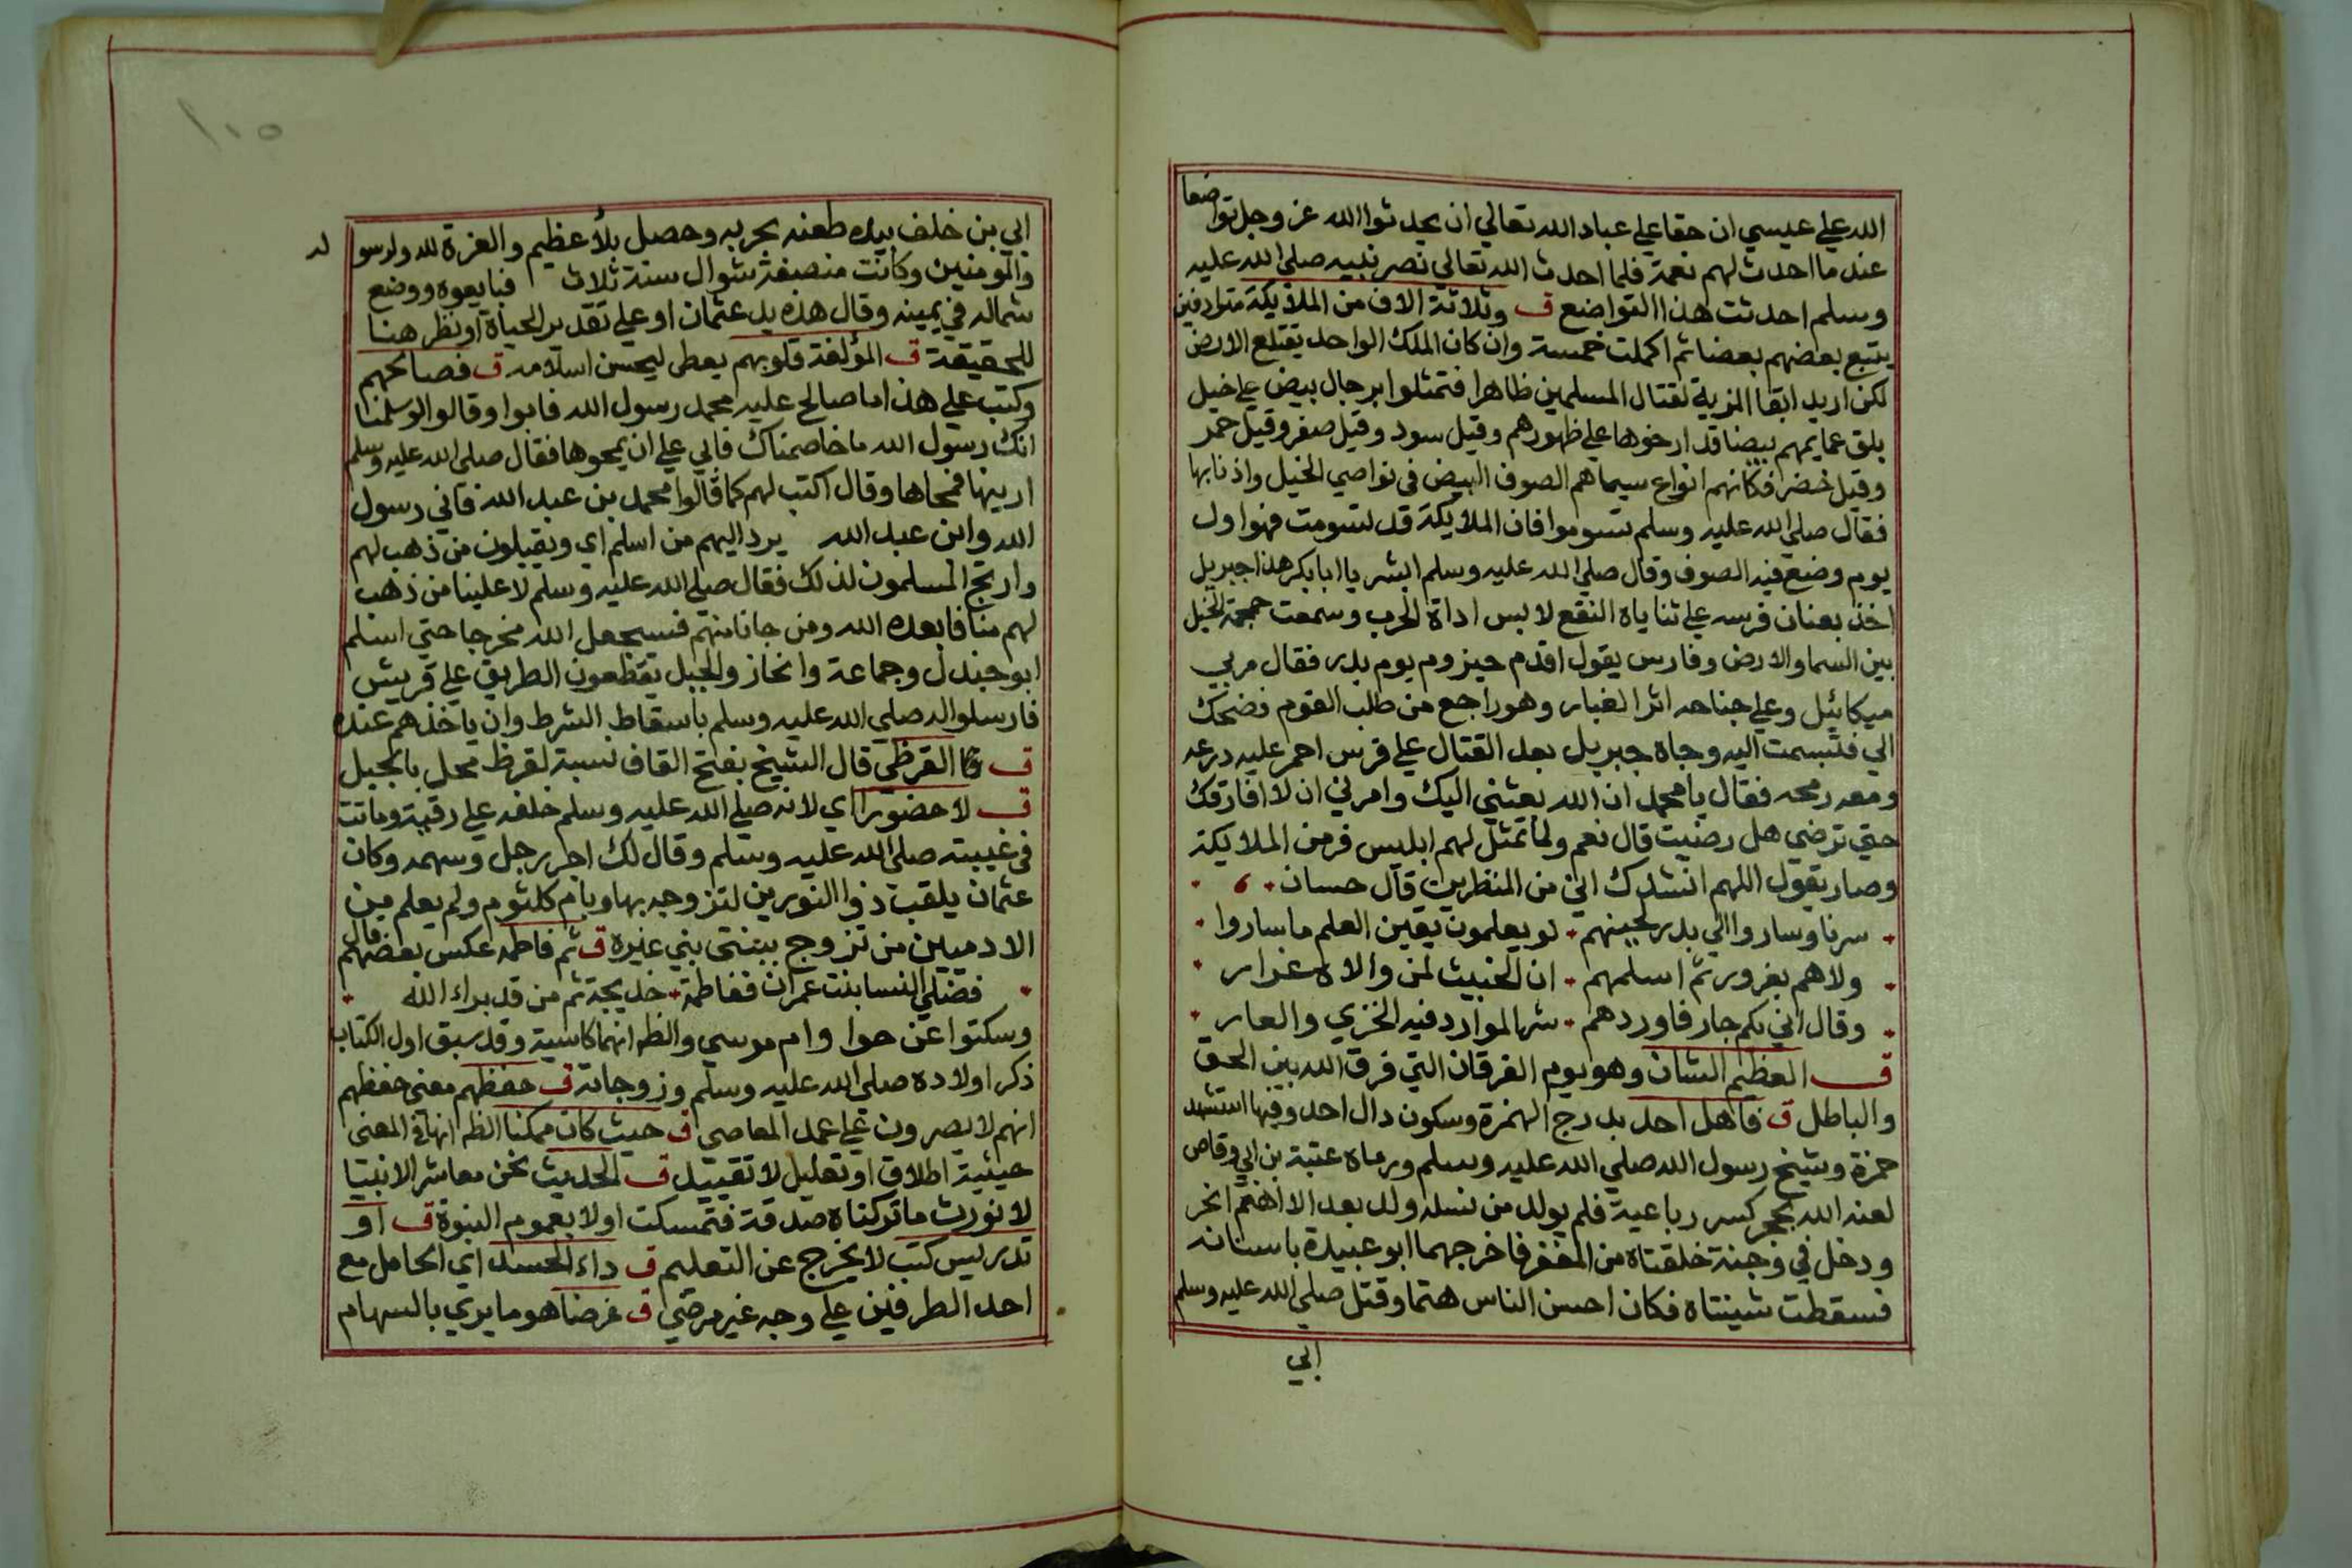 الله علي عيسي ان حقا علي عباد الله تعالي ان يحدثوا الله عز وجل تواضعا
عند ما احدث لهم نعمة فلما احدث الله تعالي نصر نبيه صلي الله عليه
وسلم احدثت هذا التواضع ق وثلاثة الاف من الملايكة مترادفين
يتبع بعضهم بعضا ثم اكملت خمسة وان كان الملك الواحد يقتلع الارض
لكن اريد ابقا المزية لقتال المسلمين ظاهرا فتمثلوا برجال بيض علي خيل
بلق عمايمهم بيضا قد ارخوها علي ظهورهم وقيل سود وقيل صفر وقيل حمر
وقيل خضر افكانهم انواع سيماهم الصوف البيض في نواصي الخيل واذنابها
فقال صلي الله عليه وسلم تسوموا فان الملايكة قد تسومت فهو اول
يوم وضع فيه الصوف وقال صلي الله عليه وسلم ابشر يا ابا بكر هذا جبريل
اخذ بعنان فرسه علي ثناياه النقع لابس اداة الحرب وسمعت حمحمة الخيل
بين السما والارض وفارس يقول اقدم حيزوم يوم بدر فقال مر بي
ميكائيل وعلي جناحه اثر الغبار وهو راجع من طلب القوم فضحك
الي فتبسمت اليه وجاه جبريل بعد القتال علي فرس احمر عليه درعه
ومعه رمحه فقال يا محمد ان الله بعثني اليك وامرني ان لا افارقك
حتي ترضي هل رضيت قال نعم ولما تمثل لهم ابليس فر من الملايكة
وصار يقول اللهم انشدك اني من المنظرين قال حسان
سرنا وساروا الي بدر لحينهم لو يعلمون يقين العلم ما ساروا
ولاهم بغرور ثم اسلمهم ان الخبيث لمن والاه غرار
وقال اني لكم جار فاوردهم شر الموارد فيه الخزي والعار
ق العظيم الشان وهو يوم الفرقان التي فرق الله بين الحق
والباطل ق فاهل احد بدرج الهمزة وسكون دال احد وفيها استشهد
حمزة وشيخ رسول الله صلي الله عليه وسلم ورماه عتبة بن ابي وقاص
لعنه الله بحجر كسر رباعية فلم يولد من نسله ولد بعد الا اهتم ابخر
ودخل في وجنة خلقتاه من المغفر فاخرجهما ابو عبيدة باسنانه
فسقطت ثنيتاه فكان احسن الناس هتما وقتل صلي الله عليه وسلم
ابي
ابي بن خلف بيده طعنه بحربه وحصل بلاء عظيم والعزة لله ولرسوله
والمومنين وكانت منصفة شوال سنة ثلاث فبايعوه ووضع
شماله في يمينه وقال هذه يد عثمان او علي تقدير الحياة او نظر هنا
للحقيقة ق المؤلفة قلوبهم يعطي ليحسن اسلامه ق فصالحهم
وكتب علي هذا ما صالح عليه محمد رسول الله فابوا وقالوا لو سلمنا
انك رسول الله ما خاصمناك فابي علي ان يمحوها فقال صلي الله عليه وسلم
ارينها فمحاها وقال اكتب لهم كما قالوا محمد بن عبد الله فاني رسول
الله وابن عبد الله يرد اليهم من اسلم اي ويقبلون من ذهب لهم
وارتج المسلمون لذلك فقال صلي الله عليه وسلم لا علينا من ذهب
لهم منا فابعده الله ومن جانا منهم فسيجعل الله مخرجا حتي اسلم
ابو جندل وجماعة وانحاز والجبل يقطعون الطريق علي قريش
فارسلوا له صلي الله عليه وسلم باسقاط الشرط وان ياخذهم عنده
ق القرظي قال الشيخ بفتح القاف نسبة لقرظ محل بالجبل
ق لا حضورا اي لانه صلي الله عليه وسلم خلفه علي رقية وماتت
في غيبته صلي الله عليه وسلم وقال لك اجر رجل وسهمه وكان
عثمان يلقب ذو النورين لتزوجه بها وبام كلثوم ولم يعلم من
الادميين من تزوج ببنتي بني غيره ق ثم فاطمه عكس بعضهم قال
فضلي النسا بنت عمران ففاطمة خديجة ثم من قد براء الله
وسكتوا عن حوا وام موسي والظر انهما كاسية وقد سبق اول الكتاب
ذكر اولاده صلي الله عليه وسلم وزوجاته ق حفظهم معني حفظهم
انهم لا يصرون علي عمد المعاصي ق حيث كان ممكنا الظر انها في المعني
حيثية اطلاق او تعليل لا تقييد ق الحديث نحن معاشر الانبيا
لا نورث ما تركناه صدقة فتمسكت اولا بعموم البنوة ق او
تدريس كتب لا يخرج عن التعليم ق داء الحسد اي الحامل مع
احد الطرفين علي وجه غير مرضي ق غرضا هو ما يرمي بالسهام